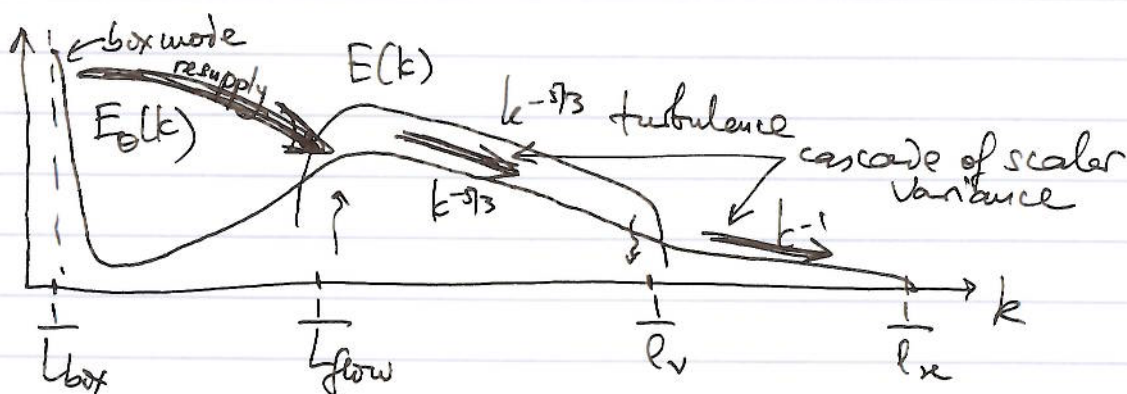 box mode
resupply
E(k)
E_θ(k)
k^{-5/3} turbulence
cascade of scalar
variance
k^{-5/3}
k^{-1}
k
1/L_box
1/L_flow
1/ℓ_ν
1/ℓ_κ